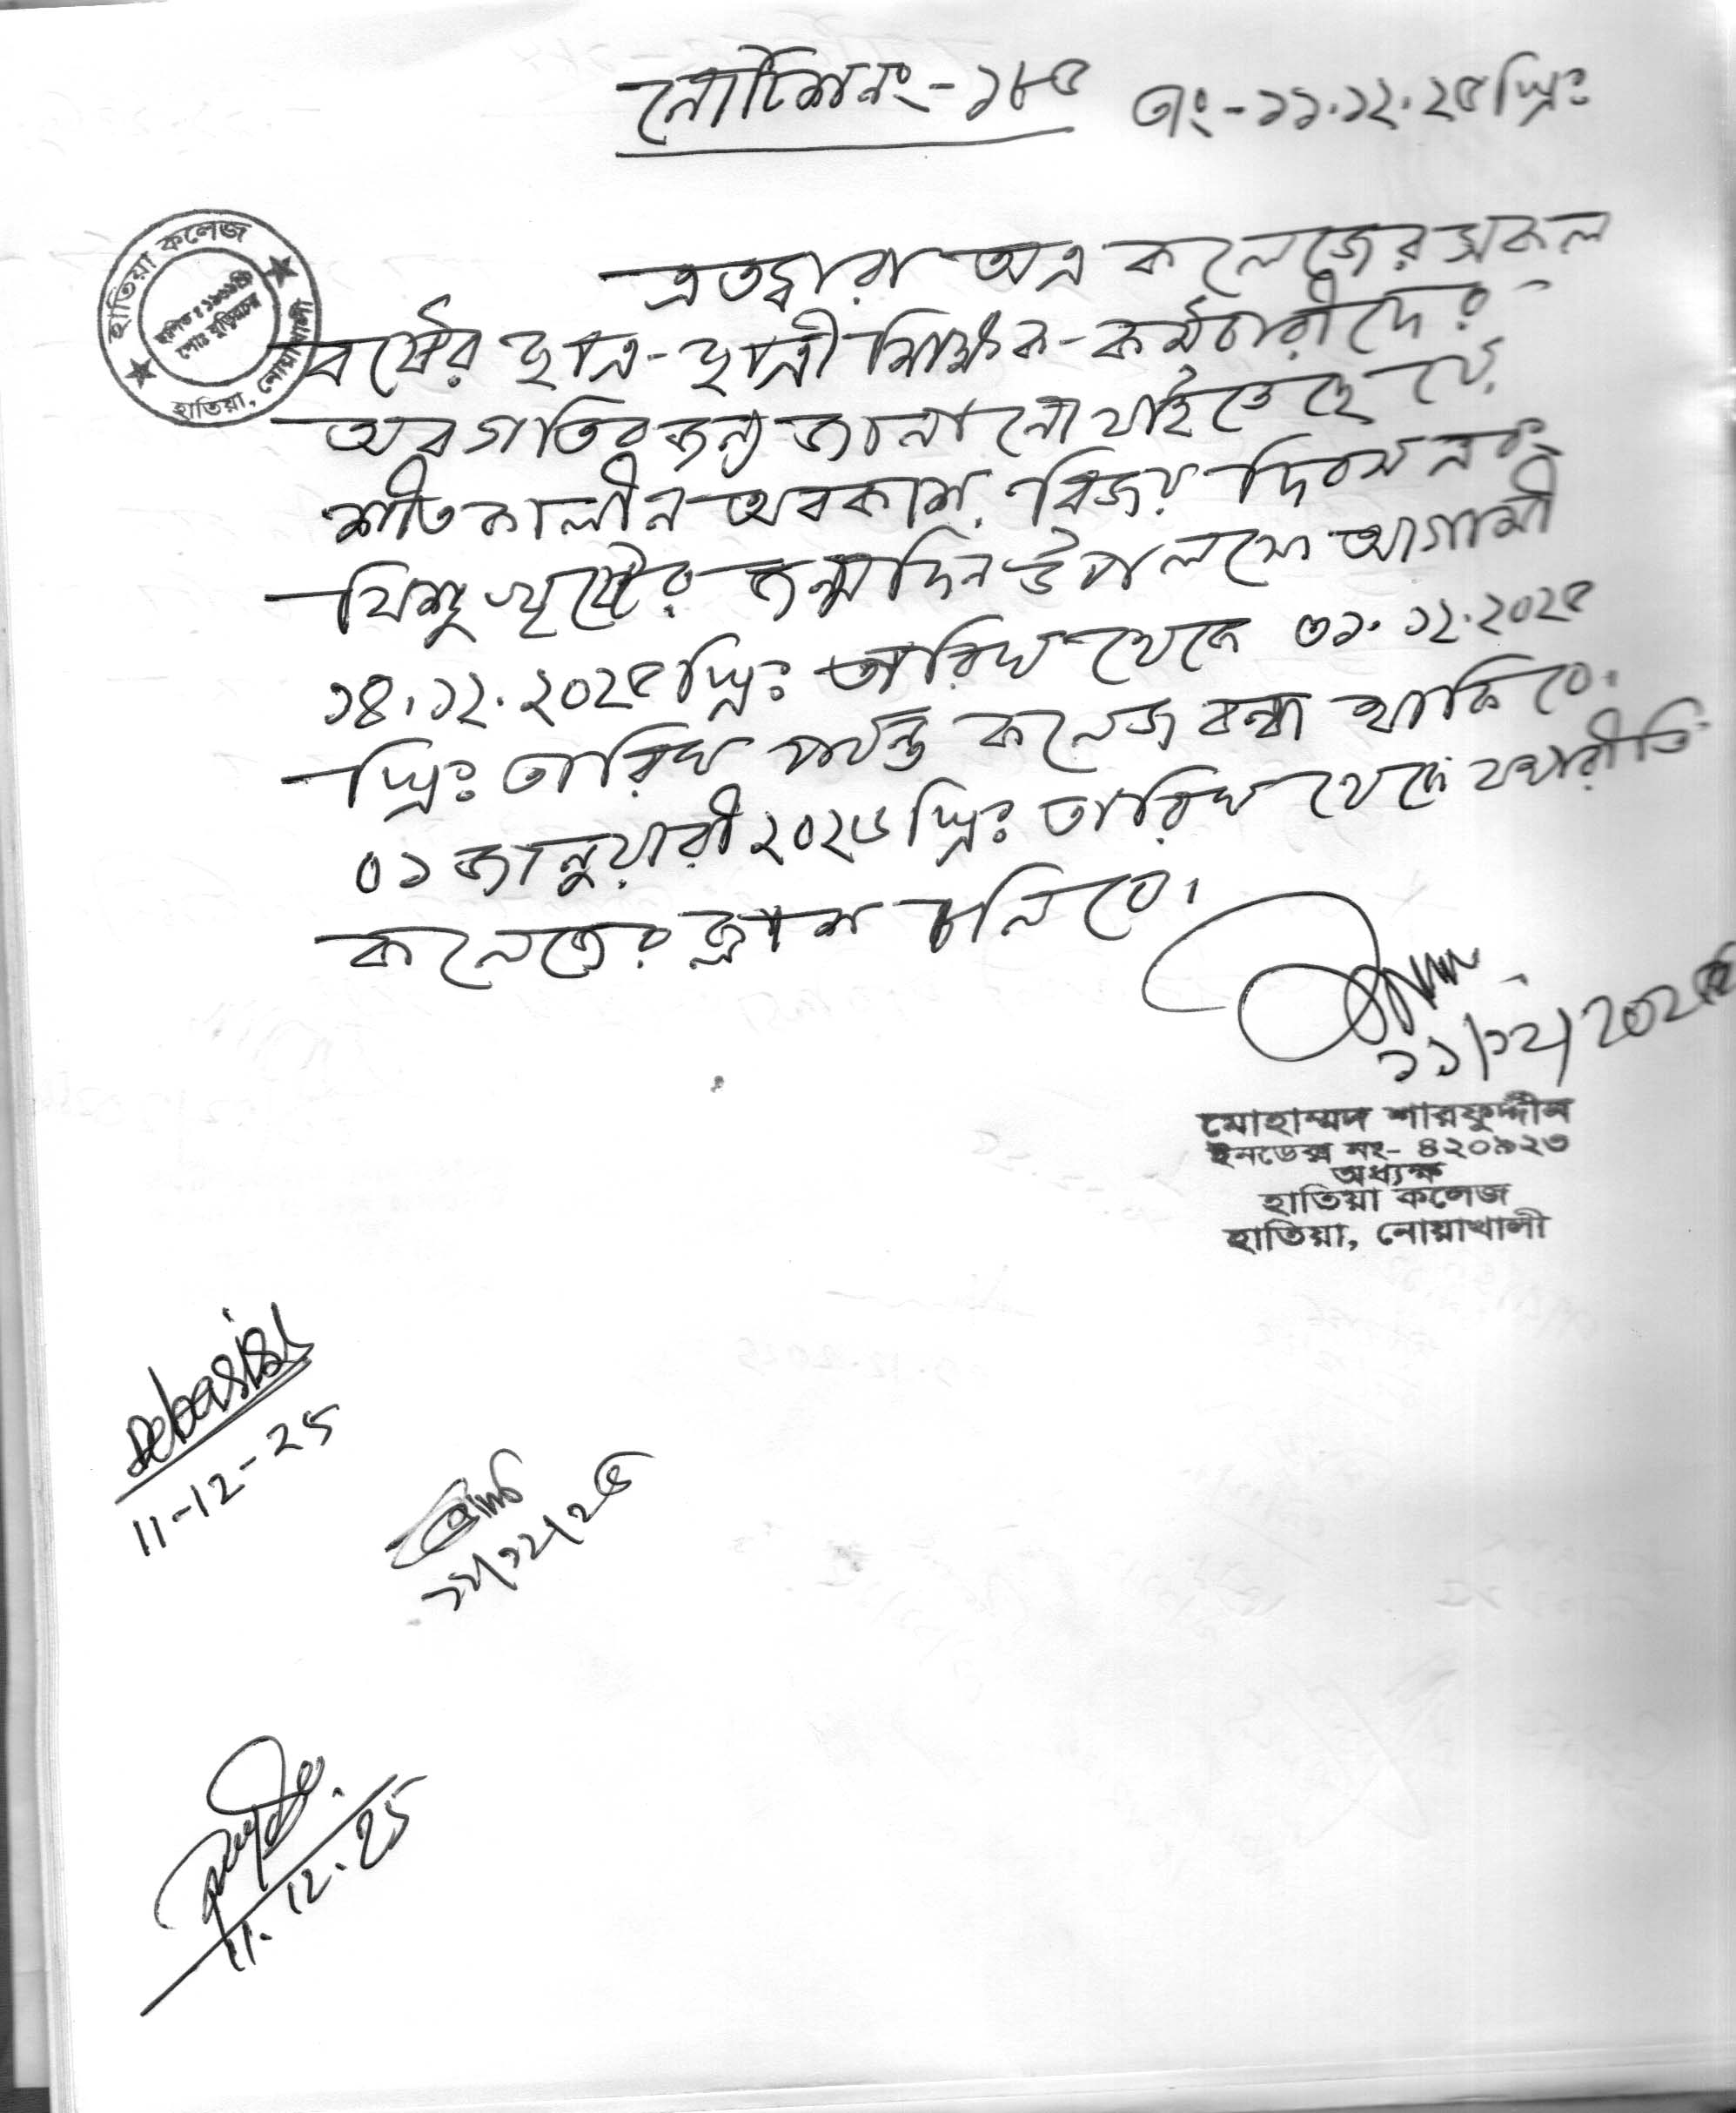 নোটিশ নং-১৮৫ তাং-১১.১২.২৫খ্রিঃ
হাতিয়া কলেজ
হাতিয়া, নোয়াখালী
এতদ্বারা অত্র কলেজের সকল
বর্ষের ছাত্র-ছাত্রী শিক্ষক-কর্মচারীদের
অবগতির জন্য জানানো যাইতেছে যে,
শীতকালীন অবকাশ, বিজয় দিবস এবং
যিশু খৃষ্টের জন্মদিন উপলক্ষে আগামী
১৪.১২.২০২৫খ্রিঃ তারিখ থেকে ৩১.১২.২০২৫
খ্রিঃ তারিখ পর্যন্ত কলেজ বন্ধ থাকিবে।
০১ জানুয়ারী ২০২৬ খ্রিঃ তারিখ থেকে যথারীতি
কলেজের ক্লাশ চলিবে।
১১/১২/২০২৫
মোহাম্মদ শারফুদ্দীন
ইনডেক্স নং- ৪২০৯২৩
অধ্যক্ষ
হাতিয়া কলেজ
হাতিয়া, নোয়াখালী
Debasish
11-12-25
11.12.25